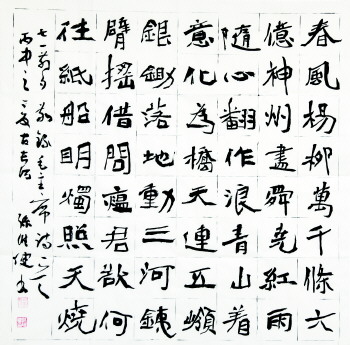 春風楊柳萬千條六
億神州盡舜堯紅雨
隨心翻作浪青山着
意化為橋天連五嶺
銀鋤落地動三河鐵
臂搖借問瘟君欲何
往紙船明燭照天燒
七一前夕敬錄毛主席詩二首之一
丙申之夏